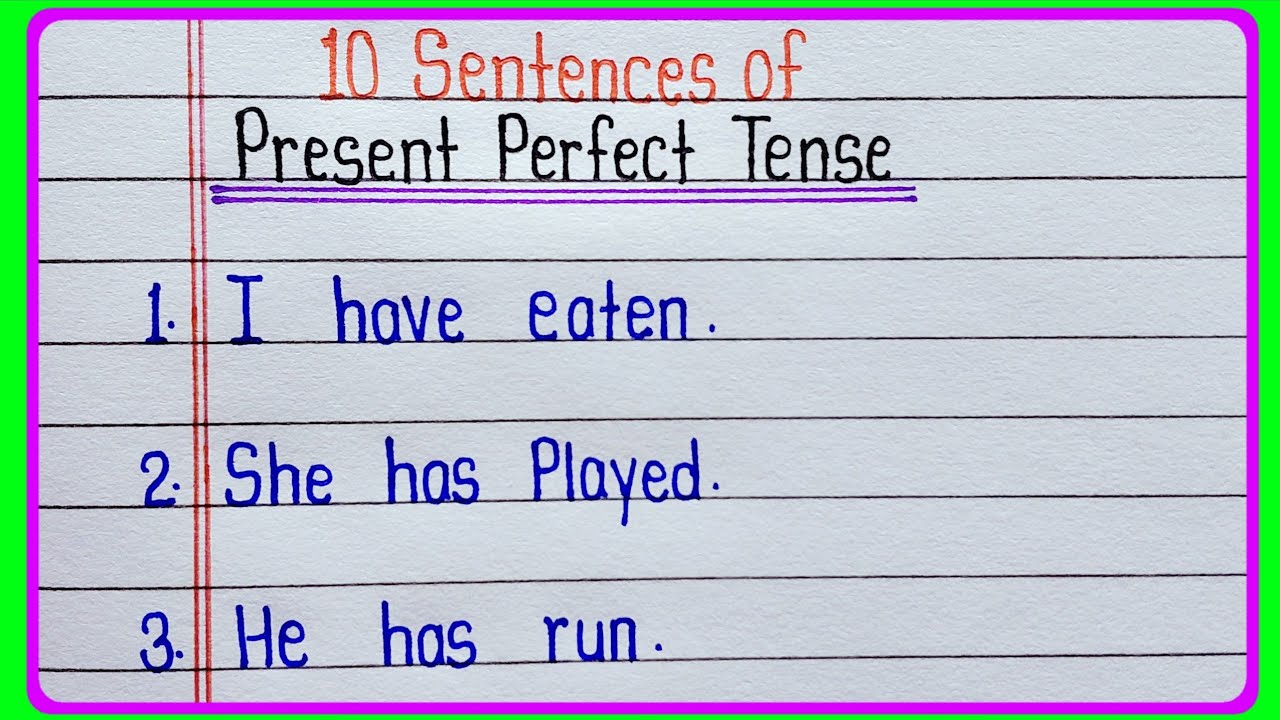 10 Sentences of
Present Perfect Tense
1. I have eaten.
2. She has Played.
3. He has run.